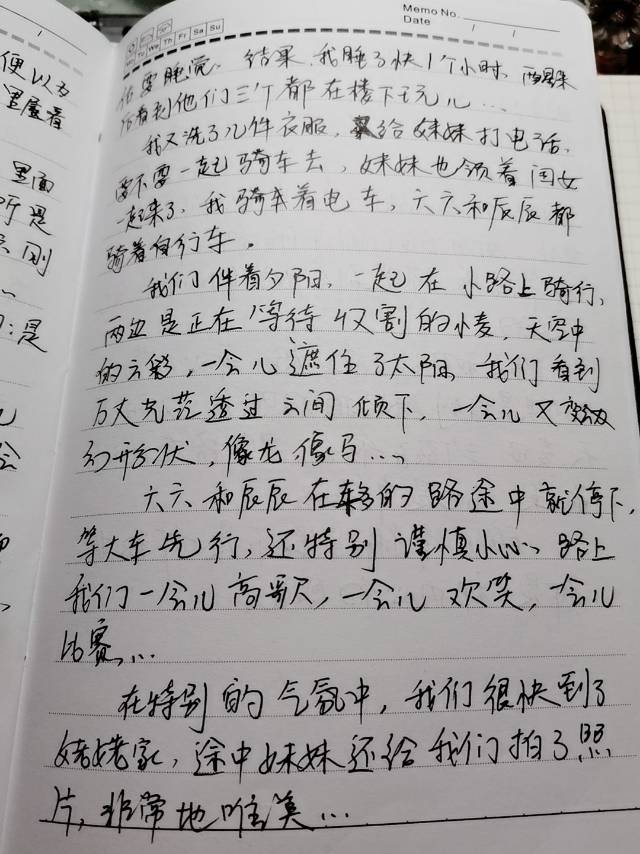 Memo No.
Date / /
Tu We Th Fr Sa Su
便以为
里面
刚
是
要睡觉。结果,我睡了快1个小时,
看到他们三个都在楼下玩儿...
我又洗了几件衣服,给妹妹打电话,
要不要一起骑车去,妹妹也领着闺女
一起来了,我骑着电车,六六和辰辰都
骑着自行车。
我们伴着夕阳,一起在小路上骑行,
两边是正在等待收割的小麦,天空中
的云彩,一会儿遮住了太阳,我们看到
万丈光芒透过云间倾下,一会儿又变幻
形状,像龙像马...
六六和辰辰在车多的路途中就停下,
等大车先行,还特别谨慎小心、路上
我们一会儿高歌,一会儿欢笑,一会儿
比赛,...
在特别的气氛中,我们很快到了
姥姥家,途中妹妹还给我们拍了照
片,非常地唯美...